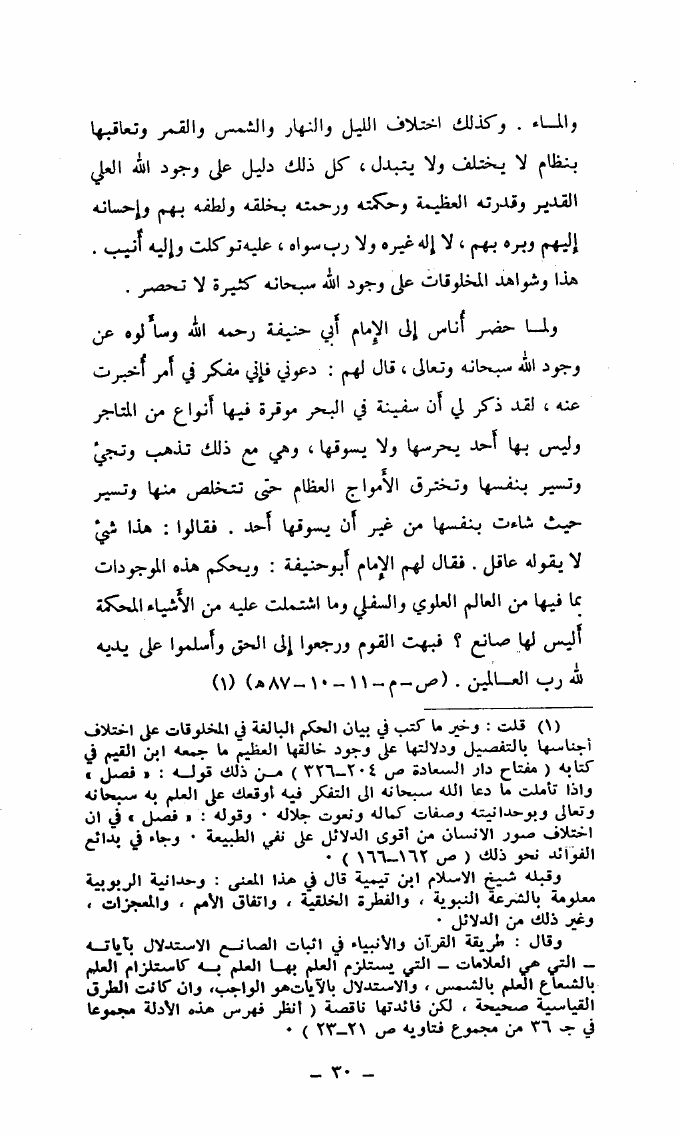 والمـاء . وكذلك اختلاف الليل والنهار والشمس والقمر وتعاقبها
بنظام لا يختلف ولا يتبدل ، كل ذلك دليل على وجود الله العلي
القدير وقدرته العظيمة وحكمته ورحمته بخلقه ولطفه بهم وإحسانه
إليهم وبره بهم ، لا إله غيره ولا رب سواه ، عليه توكلت وإليه أنيب .
هذا وشواهد المخلوقات على وجود الله سبحانه كثيرة لا تحصر .
ولمـا حضر أناس إلى الإمام أبي حنيفة رحمه الله وسألوه عن
وجود الله سبحانه وتعالى ، قال لهم : دعوني فإني مفكر في أمر أخبرت
عنه ، لقد ذكر لي أن سفينة في البحر موقرة فيها أنواع من المتاجر
وليس بها أحد يحرسها ولا يسوقها ، وهي مع ذلك تذهب وتجيْ
وتسير بنفسها وتخترق الأمواج العظام حتى تتخلص منها وتسير
حيث شاءت بنفسها من غير أن يسوقها أحد . فقالوا : هذا شيْ
لا يقوله عاقل . فقال لهم الإمام أبو حنيفة : ويحكم هذه الموجودات
بما فيها من العالم العلوي والسفلي وما اشتملت عليه من الأشياء المحكمة
أليس لها صانع ؟ فبهت القوم ورجعوا إلى الحق وأسلموا على يديه
لله رب العـالمين . (ص-م-١١-١٠-٨٧ه) (١)
(١) قلت : وخير ما كتب في بيان الحكم البالغة في المخلوقات على اختلاف
أجناسها بالتفصيل ودلالتها على وجود خالقها العظيم ما جمعه ابن القيم في
كتابه ( مفتاح دار السعادة ص ٢٠٤-٣٢٦ ) مـن ذلك قولـه : « فصل »
واذا تأملت ما دعا الله سبحانه الى التفكر فيه أوقعك على العلم به سبحانه
وتعالى وبوحدانيته وصفات كماله ونعوت جلاله . وقوله : « فصل » في ان
اختلاف صور الانسان من أقوى الدلائل على نفي الطبيعة . وجاء في بدائع
الفوائد نحو ذلك ( ص ١٦٢-١٦٦ ) .
وقبله شيخ الاسلام ابن تيمية قال في هذا المعنى : وحدانية الربوبية
معلومة بالشرعة النبوية ، والفطرة الخلقية ، واتفاق الأمم ، والمعجزات ،
وغير ذلك من الدلائل .
وقال : طريقة القرآن والأنبياء في اثبات الصانـع الاستدلال بآياتـه
- التي هي العلامات - التي يستلزم العلم بهـا العلم بـه كاستلزام العلم
بالشعاع العلم بالشمس ، والاستدلال بالآيات هو الواجب، وان كانت الطرق
القياسية صحيحة ، لكن فائدتها ناقصة ( أنظر فهرس هذه الأدلة مجموعا
في جـ ٣٦ من مجموع فتاويه ص ٢١-٢٣ ) .
- ٣٠ -